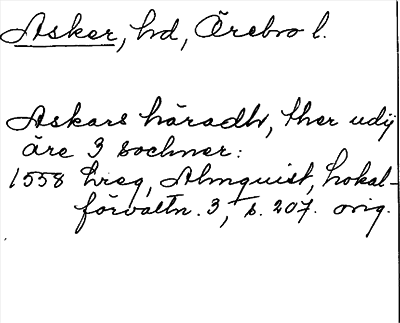 Asker, hd, Örebro l.
Askars häradh, ther udij
äre 3 sochner:
1558 hreg, Almquist, Lokal-
förvaltn. 3, s. 207. orig.